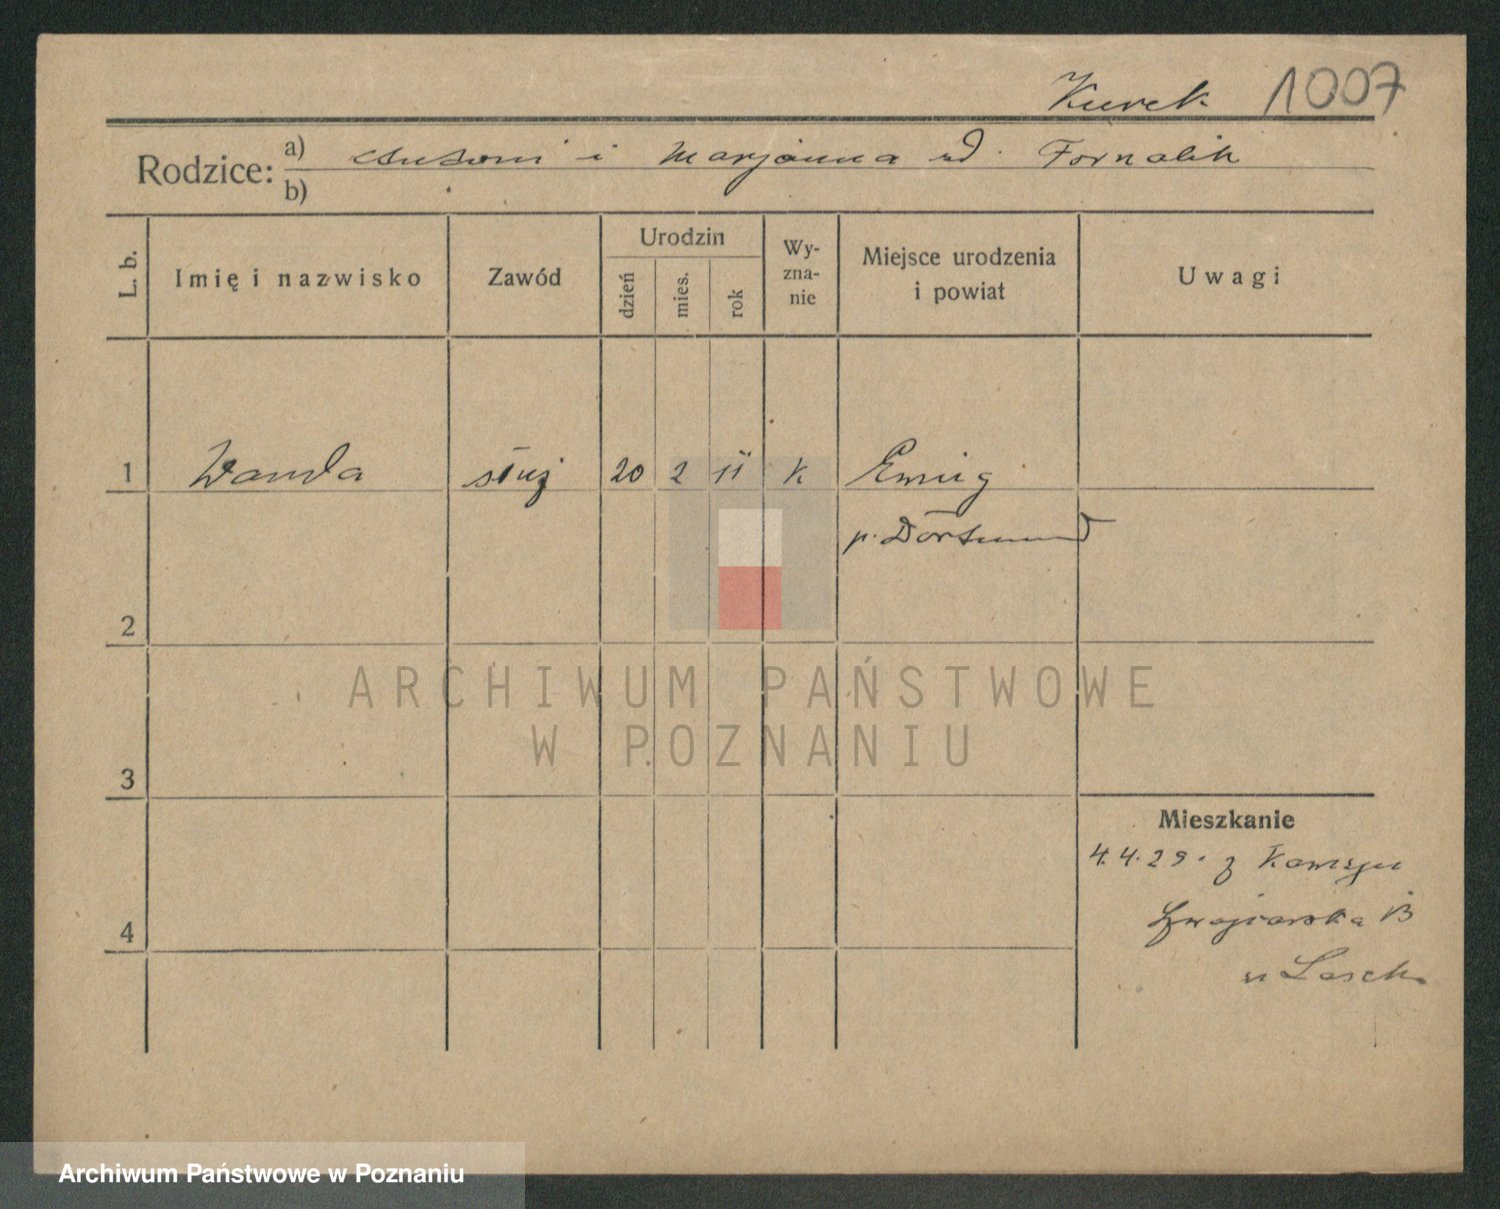 Kurek 1007
Rodzice: a) Antoni i Marjanna zd. Fornalik
b)
L. b. Imię i nazwisko Zawód Urodzin dzień mies. rok Wy-zna-nie Miejsce urodzenia i powiat Uwagi
1 Wanda służ 20 2 11 k Emig
p. Dortmund
2
ARCHIWUM PAŃSTWOWE
W POZNANIU
3
Mieszkanie
4.4.29. z
4 13
u
Archiwum Państwowe w Poznaniu